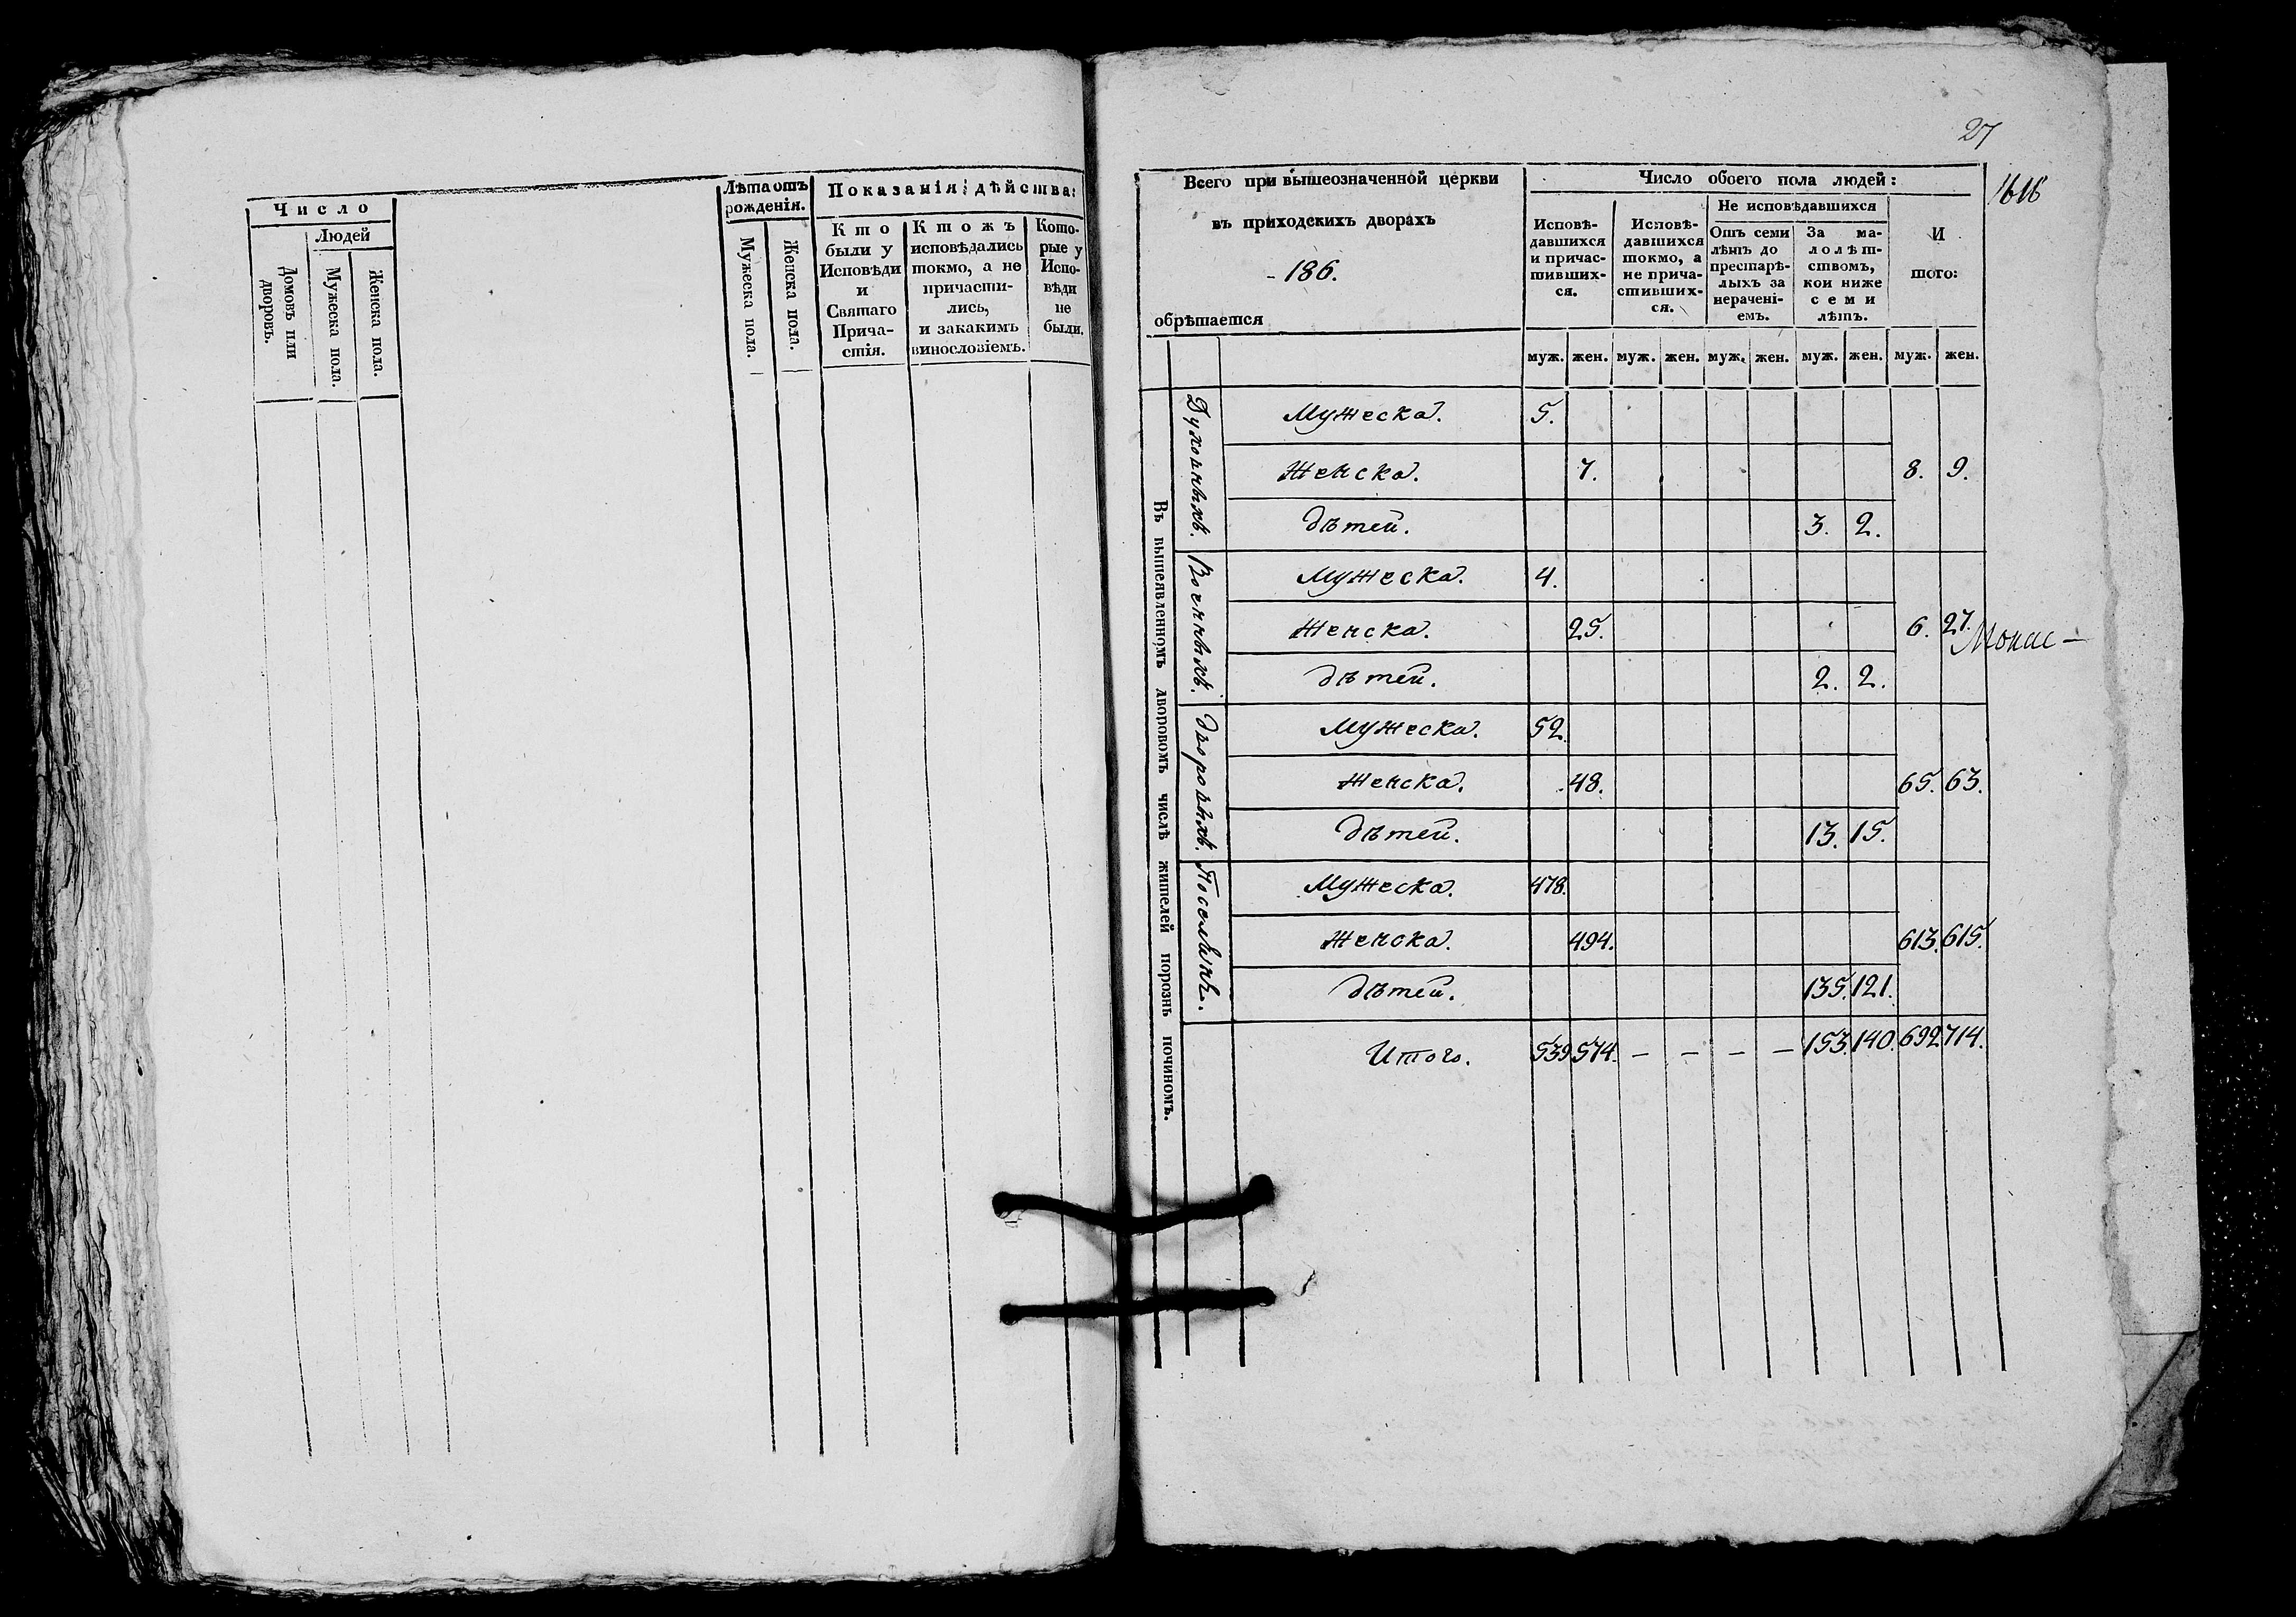 Число
Людей
Домовъ или дворовъ.
Мужеска пола.
Женска пола.
Лѣта отъ рожденія.
Мужеска пола.
Женска пола.
Показанія дѣйства:
Кто были у Исповѣди и Святаго Причастія.
Ктожъ исповѣдались токмо, а не причастились, и закакимъ винословіемъ.
Которые у Исповѣди не были.
27
Всего при вышеозначенной церкви
въ приходскихъ дворахъ
- 186.
обрѣтается
Число обоего пола людей:
Исповѣ-
давшихся
и причас-
тивших-
ся.
Исповѣ-
давшихся
токмо, а
не прича-
стивших-
ся.
Не исповѣдавшихся
Отъ семи
лѣтъ до
престарѣ-
лыхъ за
нерачені-
емъ.
За ма-
лолѣт-
ствомъ,
кои ниже
семи
лѣтъ.
И
того:
муж. жен. муж. жен. муж. жен. муж. жен. муж. жен.
Въ вышеявленномъ дворовомъ числѣ жителей порознь починомъ.
Духовныхъ.
Мужеска. 5.
Женска. 7. 8. 9.
Дѣтей. 3. 2.
Военныхъ.
Мужеска. 4.
Женска. 25. 6. 27.
Дѣтей. 2. 2.
Дворовыхъ.
Мужеска. 52.
Женска. 48. 65. 63.
Дѣтей. 13. 15.
Поселянъ.
Мужеска. 478.
Женска. 494. 613. 615.
Дѣтей. 135. 121.
Итого. 539 574. — — — — 153. 140. 692 714.